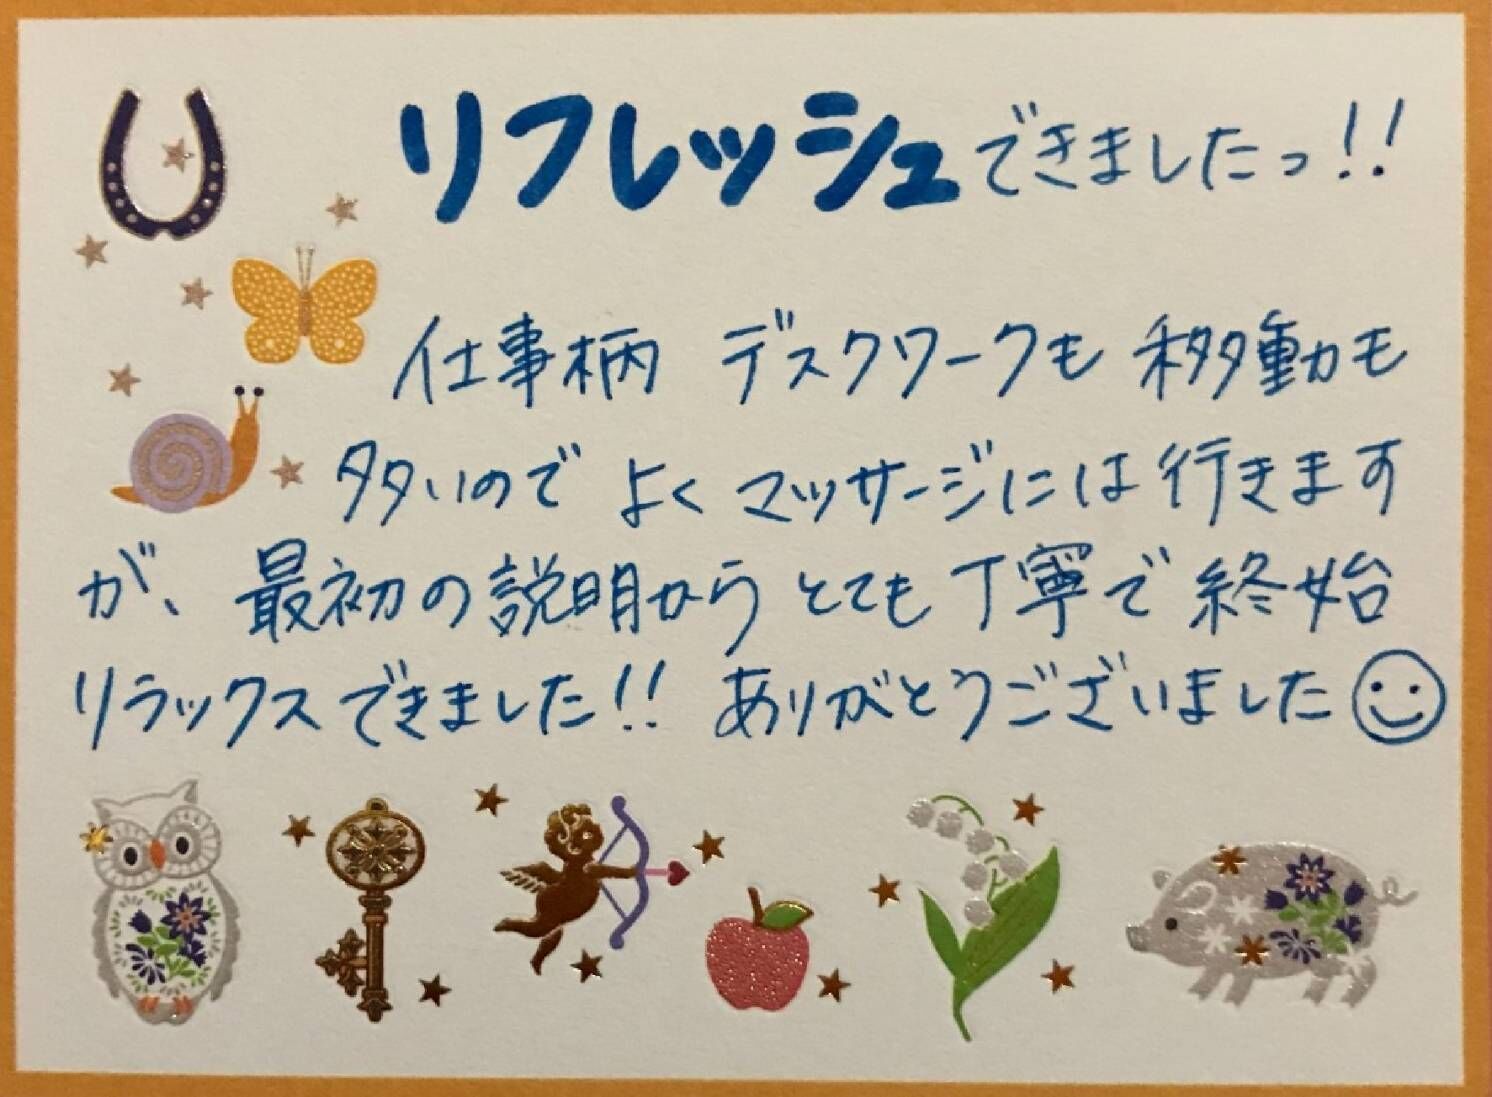 リフレッシュできましたっ!!
仕事柄 デスクワークも 移動も
多いので よく マッサージには 行きます
が、最初の説明から とても 丁寧で 終始
リラックスできました!! ありがとうございました☺